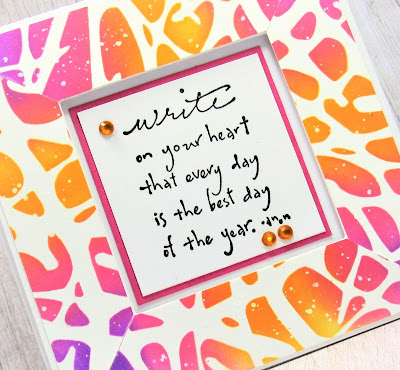 write
on your heart
that every day
is the best day
of the year.